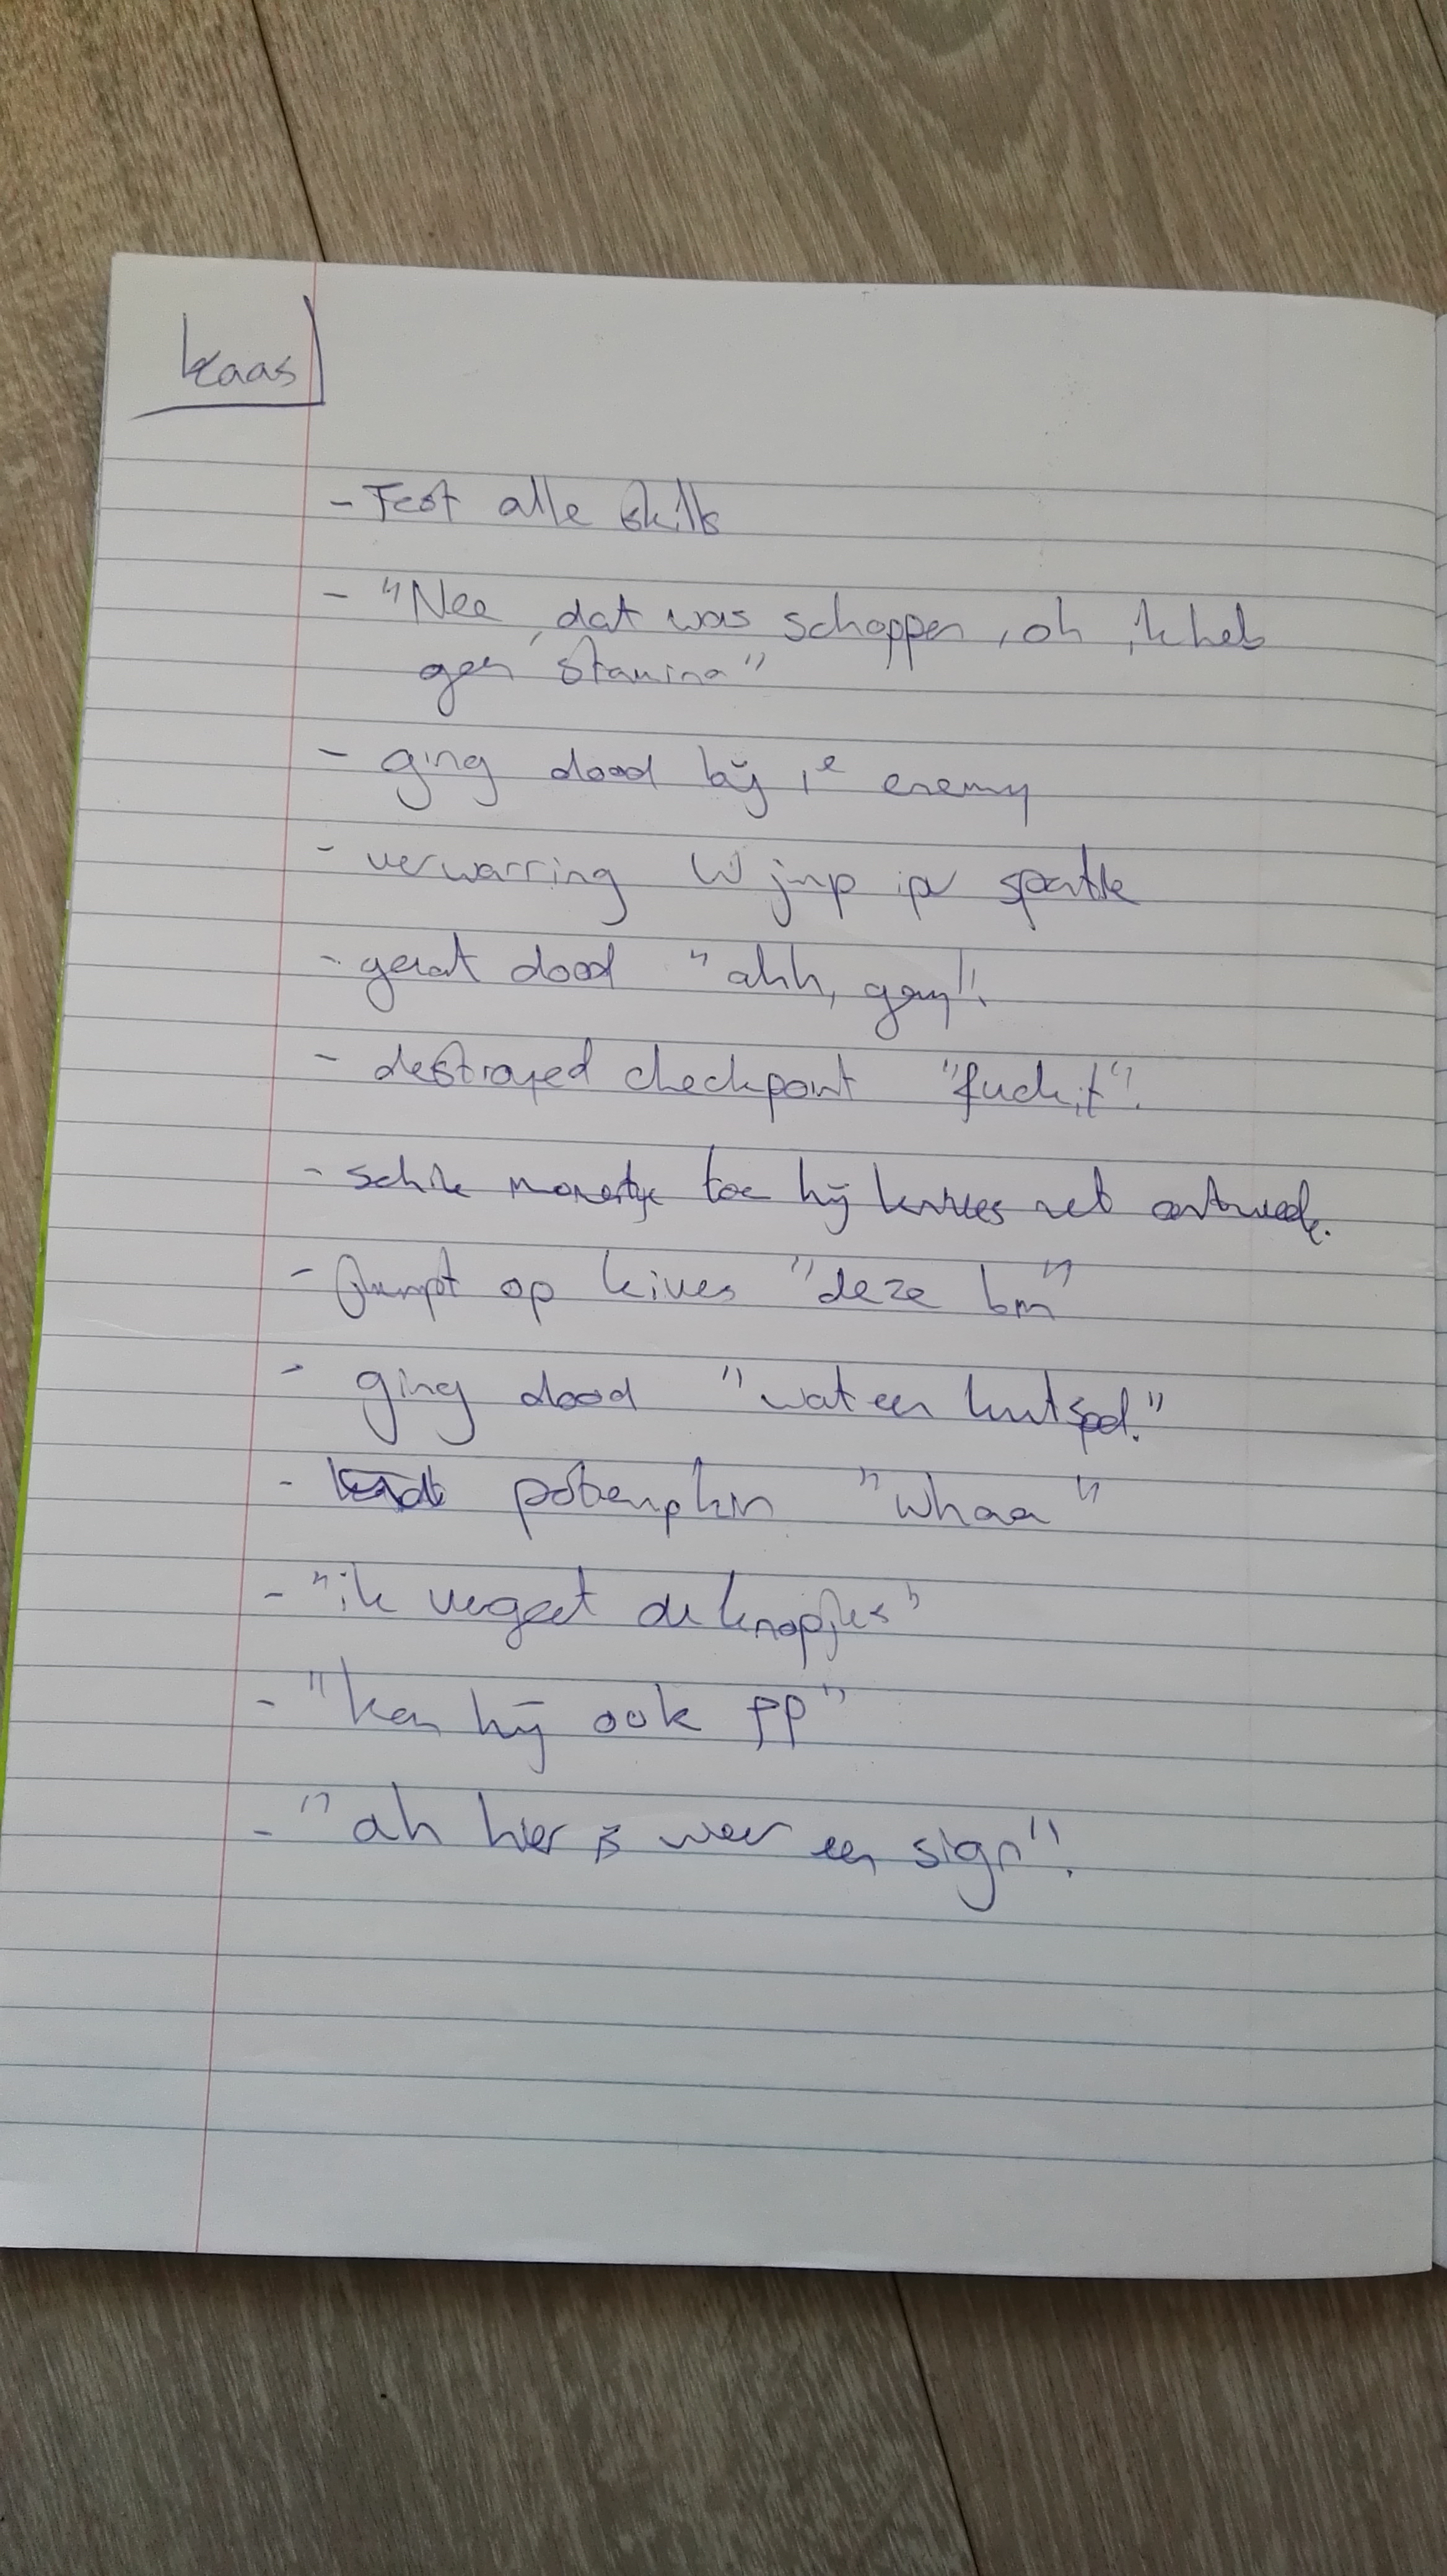 kaas
- Test alle skills
- "Nee, dat was schoppen, oh ik heb
geen stamina"
- ging dood bij 1e enemy
- verwarring W jmp ipv spatie
- gaat dood "ahh, gay".
- destroyed checkpoint "fuck it".
- schrik momentje toe hij knives net ontweek.
- Jumpt op knives "deze bm"
- ging dood "wat een kutspel."
- potempkin "whaa"
- "ik vergeet de knopjes"
- "kan hij ook pp"
- "ah hier is weer een sign".